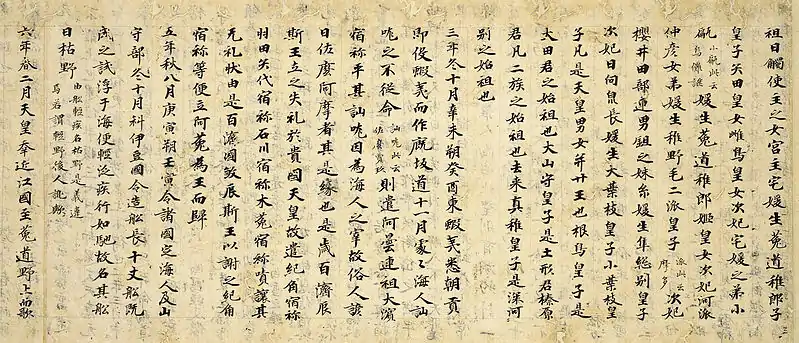 祖日觸使主之女宮主宅媛生菟道稚郎子
皇子矢田皇女雌鳥皇女次妃宅媛之弟小
甂 小甂此云烏儺謎 媛生菟道稚郎姬皇女次妃河派
仲彦女弟媛生稚野毛二派皇子 派此云摩多 次妃
櫻井田部連男鉏之妹糸媛生隼総別皇子
次妃日向泉長媛生大葉枝皇子小葉枝皇
子凡是天皇男女并廿王也根鳥皇子是
大田君之始祖也大山守皇子是土形君榛原
君凡二族之始祖也去来真稚皇子是深河
別之始祖也
三年冬十月辛未朔癸酉東蝦夷悉朝貢
即役蝦夷而作厩坂道十一月處々海人訕
哤之不從命 訕哤此云佐麼賣玖 則遣阿曇連祖大濱
宿祢平其訕哤因為海人之宰故俗人諺
曰佐麼阿摩者其是緣也是歳百濟辰
斯王立之失礼於貴國天皇故遣紀角宿祢
羽田矢代宿祢石川宿祢木菟宿祢嘖讓其
无礼狀由是百濟國敎辰斯王以謝之紀角
宿祢等便立阿菀為王而歸
五年秋八月庚寅朔壬寅令諸國定海人及山
守部冬十月科伊豆國令造船長十丈船既
成之試浮于海便輕泛疾行如馳故名其船
曰枯野 由船輕疾名枯野是義違焉若謂輕野後人訛歟
六年春二月天皇幸近江國至菟道野上而歌